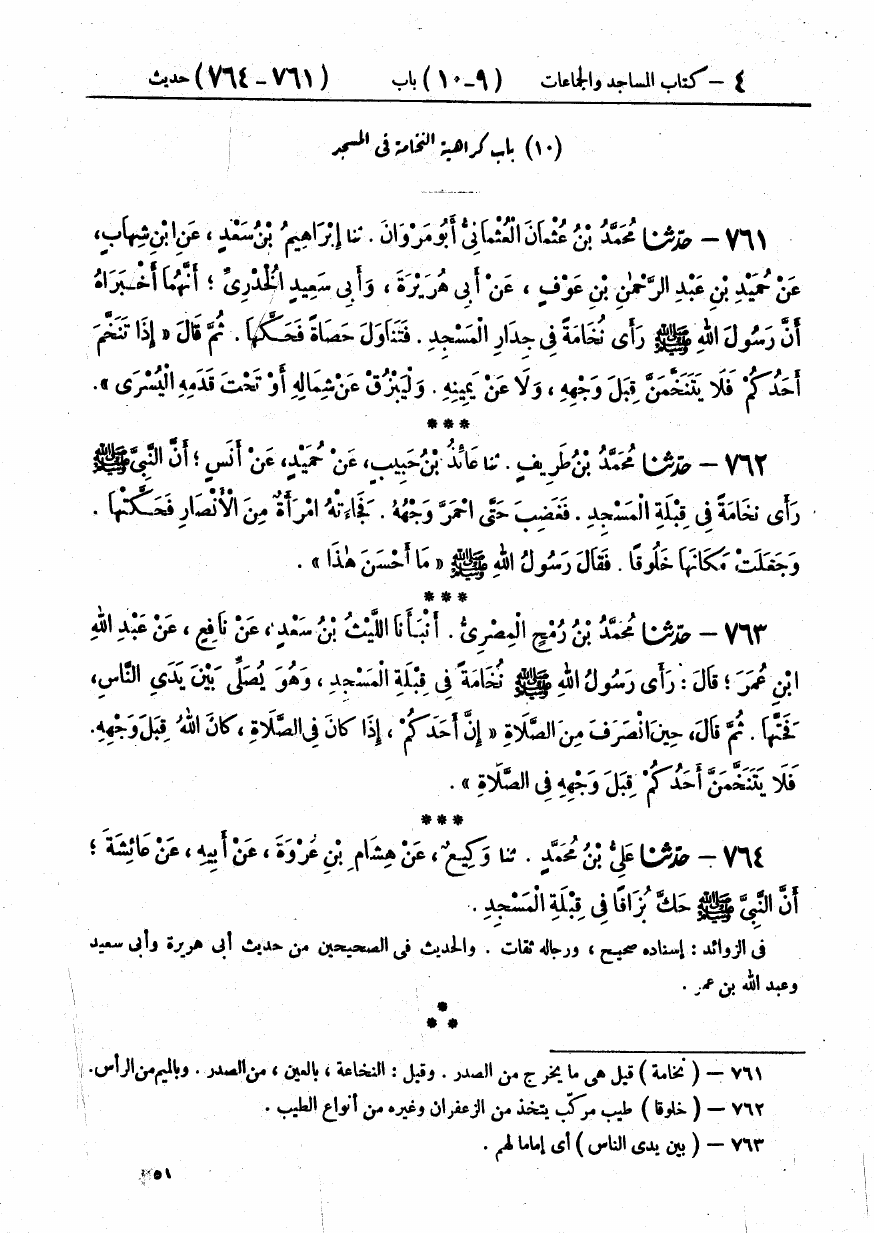 ٤ – كتاب المساجد والجماعات (٩-١٠) باب (٧٦١-٧٦٤) حديث
(١٠) باب كراهية النخامة فى المسجد
٧٦١ – حَدَّثَنَا مُحَمَّدُ بْنُ عُثْمَانَ الْعُثْمَانِيُّ أَبُو مَرْوَانَ . ثنا إِبْرَاهِيمُ بْنُ سَعْدٍ ، عَنِ ابْنِ شِهَابٍ ،
عَنْ حُمَيْدِ بْنِ عَبْدِ الرَّحْمٰنِ بْنِ عَوْفٍ ، عَنْ أَبِى هُرَيْرَةَ ، وَأَبِى سَعِيدٍ الْخُدْرِىِّ ؛ أَنَّهُمَا أَخْبَرَاهُ
أَنَّ رَسُولَ اللهِ ﷺ رَأَى نُخَامَةً فِى جِدَارِ الْمَسْجِدِ . فَتَنَاوَلَ حَصَاةً فَحَكَّهَا . ثُمَّ قَالَ « إِذَا تَنَخَّمَ
أَحَدُكُمْ فَلَا يَتَنَخَّمَنَّ قِبَلَ وَجْهِهِ ، وَلَا عَنْ يَمِينِهِ . وَلْيَبْزُقْ عَنْ شِمَالِهِ أَوْ تَحْتَ قَدَمِهِ الْيُسْرَى » .
***
٧٦٢ – حَدَّثَنَا مُحَمَّدُ بْنُ طَرِيفٍ . ثنا عَائِذُ بْنُ حَبِيبٍ ، عَنْ حُمَيْدٍ ، عَنْ أَنَسٍ ؛ أَنَّ النَّبِىَّ ﷺ
رَأَى نُخَامَةً فِى قِبْلَةِ الْمَسْجِدِ . فَغَضِبَ حَتَّى احْمَرَّ وَجْهُهُ . فَجَاءَتْهُ امْرَأَةٌ مِنَ الْأَنْصَارِ فَحَكَّتْهَا .
وَجَعَلَتْ مَكَانَهَا خَلُوقًا . فَقَالَ رَسُولُ اللهِ ﷺ « مَا أَحْسَنَ هٰذَا » .
***
٧٦٣ – حَدَّثَنَا مُحَمَّدُ بْنُ رُمْحٍ الْمِصْرِىُّ . أَنْبَأَنَا اللَّيْثُ بْنُ سَعْدٍ ، عَنْ نَافِعٍ ، عَنْ عَبْدِ اللهِ
ابْنِ عُمَرَ ؛ قَالَ : رَأَى رَسُولُ اللهِ ﷺ نُخَامَةً فِى قِبْلَةِ الْمَسْجِدِ ، وَهُوَ يُصَلِّى بَيْنَ يَدَىِ النَّاسِ ،
فَحَتَّهَا . ثُمَّ قَالَ ، حِينَ انْصَرَفَ مِنَ الصَّلَاةِ « إِنَّ أَحَدَكُمْ ، إِذَا كَانَ فِى الصَّلَاةِ ، كَانَ اللهُ قِبَلَ وَجْهِهِ .
فَلَا يَتَنَخَّمَنَّ أَحَدُكُمْ قِبَلَ وَجْهِهِ فِى الصَّلَاةِ » .
***
٧٦٤ – حَدَّثَنَا عَلِىُّ بْنُ مُحَمَّدٍ . ثنا وَكِيعٌ ، عَنْ هِشَامِ بْنِ عُرْوَةَ ، عَنْ أَبِيهِ ، عَنْ عَائِشَةَ ؛
أَنَّ النَّبِىَّ ﷺ حَكَّ بُزَاقًا فِى قِبْلَةِ الْمَسْجِدِ .
فى الزوائد : إسناده صحيح ، ورجاله ثقات . والحديث فى الصحيحين من حديث أبى هريرة وأبى سعيد
وعبد الله بن عمر .
***
٧٦١ – ( نخامة ) قيل هى ما يخرج من الصدر . وقيل : النخاعة ، بالعين ، من الصدر . وبالميم من الرأس .
٧٦٢ – ( خلوقا ) طيب مركّب يتخذ من الزعفران وغيره من أنواع الطيب .
٧٦٣ – ( بين يدى الناس ) أى إماما لهم .
٢٥١